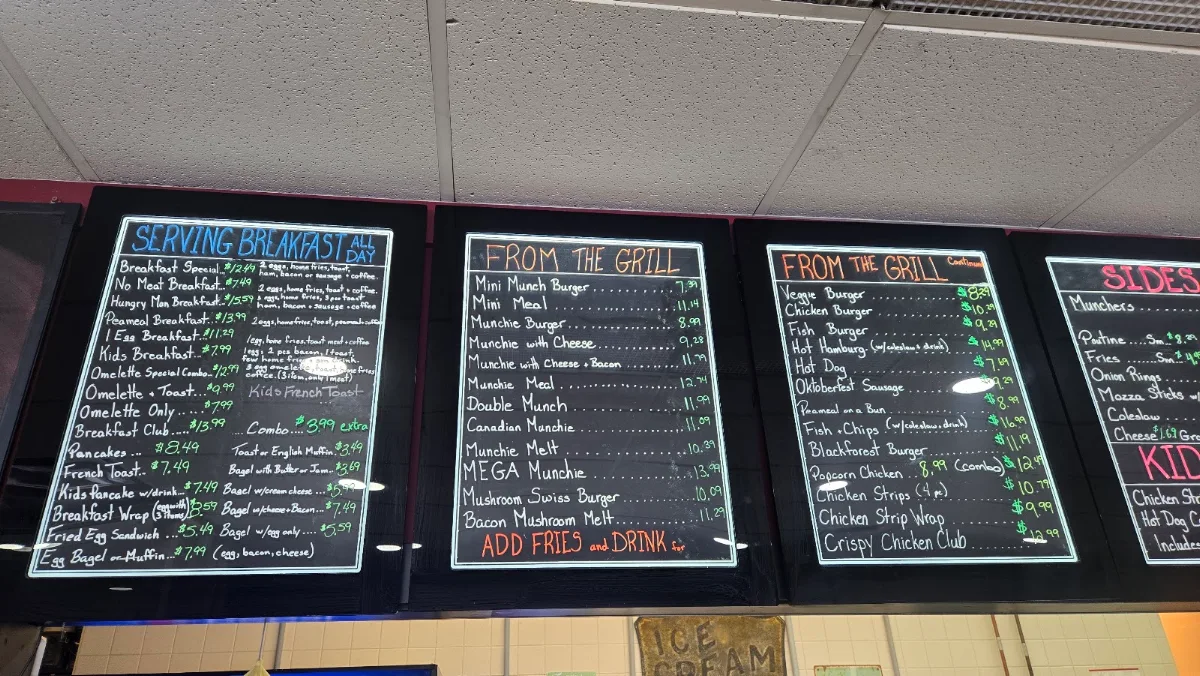 SERVING BREAKFAST ALL DAY
Breakfast Special.. $12.49 2 eggs, home fries, toast, ham, bacon or sausage + coffee.
No Meat Breakfast.. $7.49 2 eggs, home fries, toast + coffee.
Hungry Man Breakfast.. $15.59 3 eggs, home fries, 3 pcs toast ham, bacon + sausage + coffee
Peameal Breakfast.. $13.99 2 eggs, home fries, toast, peameal + coffee
1 Egg Breakfast.. $11.29 1 egg, home fries, toast meat + coffee
Kids Breakfast.. $7.99 1 egg, 2 pcs bacon, 1 toast, few home fries
Omelette Special Combo.. $12.99 3 egg omelette, toast, home fries coffee. (3 item, only 1 meat)
Omelette + Toast.. $9.99 Kids French Toast
Omelette Only... $7.99
Breakfast Club... $13.99 ... Combo... $3.99 extra
Pancakes ... $8.49 Toast or English Muffin $3.49
French Toast.. $7.49 Bagel with Butter or Jam.. $3.69
Kids Pancake w/drink... $7.49 Bagel w/cream cheese ...
Breakfast Wrap (egg with 3 items) Bagel w/cheese + Bacon.. $7.49
Fried Egg Sandwich ... $5.49 Bagel w/egg only ... $5.59
Egg Bagel or Muffin.. $7.99 (egg, bacon, cheese)
FROM THE GRILL
Mini Munch Burger 7.39
Mini Meal 11.14
Munchie Burger 8.99
Munchie with Cheese 9.28
Munchie with Cheese + Bacon 11.79
Munchie Meal 12.74
Double Munch 11.99
Canadian Munchie 11.09
Munchie Melt 10.39
MEGA Munchie 13.99
Mushroom Swiss Burger 10.09
Bacon Mushroom Melt 11.29
ADD FRIES and DRINK for
FROM THE GRILL Continued
Veggie Burger $8.29
Chicken Burger $10.29
Fish Burger $9.29
Hot Hamburg (w/coleslaw + drink) $14.99
Hot Dog $7.69
Oktoberfest Sausage $9.29
Peameal on a Bun $8.99
Fish + Chips (w/coleslaw, drink) $16.99
Blackforest Burger $11.19
Popcorn Chicken 8.99 (combo) $12.49
Chicken Strips (4 pc) $10.79
Chicken Strip Wrap $9.99
Crispy Chicken Club
SIDES
Munchers
Poutine.... Sm
Fries .... Sm
Onion Rings
Mozza Sticks
Coleslaw
Cheese $1.69
KID
Chicken Str
Hot Dog
Includes
ICE
CREAM